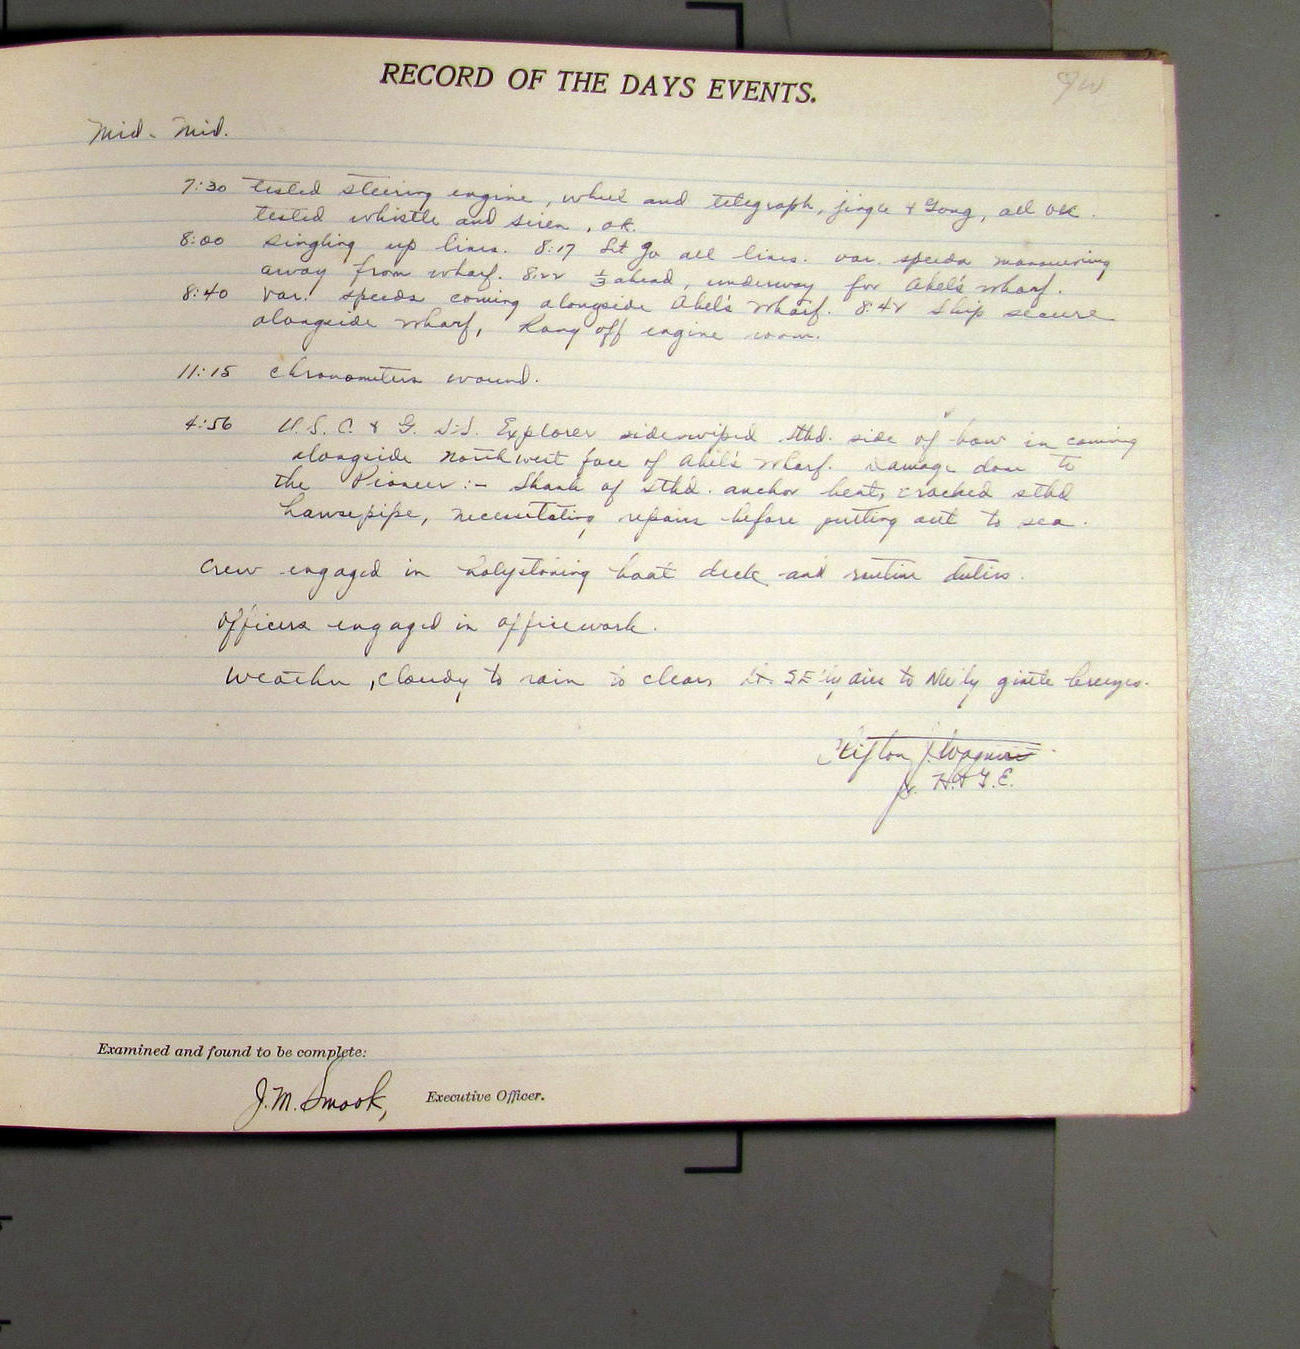 RECORD OF THE DAYS EVENTS.
Mid - Mid.
7:30 tested steering engine, wheel and telegraph, jingle & Gong, all OK.
tested whistle and siren, ok.
8:00 singling up lines. 8:17 Let go all lines. var. speeds maneuvering
away from wharf. 8:22 1/3 ahead, underway for Abel's wharf.
8:40 Var. speeds coming alongside Abel's wharf. 8:48 Ship secure
alongside wharf, Rang off engine room.
11:15 chronometers wound.
4:56 U.S.C. & G. S.S. Explorer sideswiped stbd. side of bow in coming
alongside northwest face of Abel's wharf. Damage done to
the Pioneer:- Shank of stbd. anchor bent, cracked stbd
hawsepipe, necessitating repairs before putting out to sea.
Crew engaged in holystoning boat deck and routine duties.
Officers engaged in officework.
Weather, cloudy to rain to clear, lt. SE'ly airs to NW'ly gentle breezes.
Clifton J. Wagner
Jr. H.&G.E.
Examined and found to be complete:
J.M. Smook, Executive Officer.